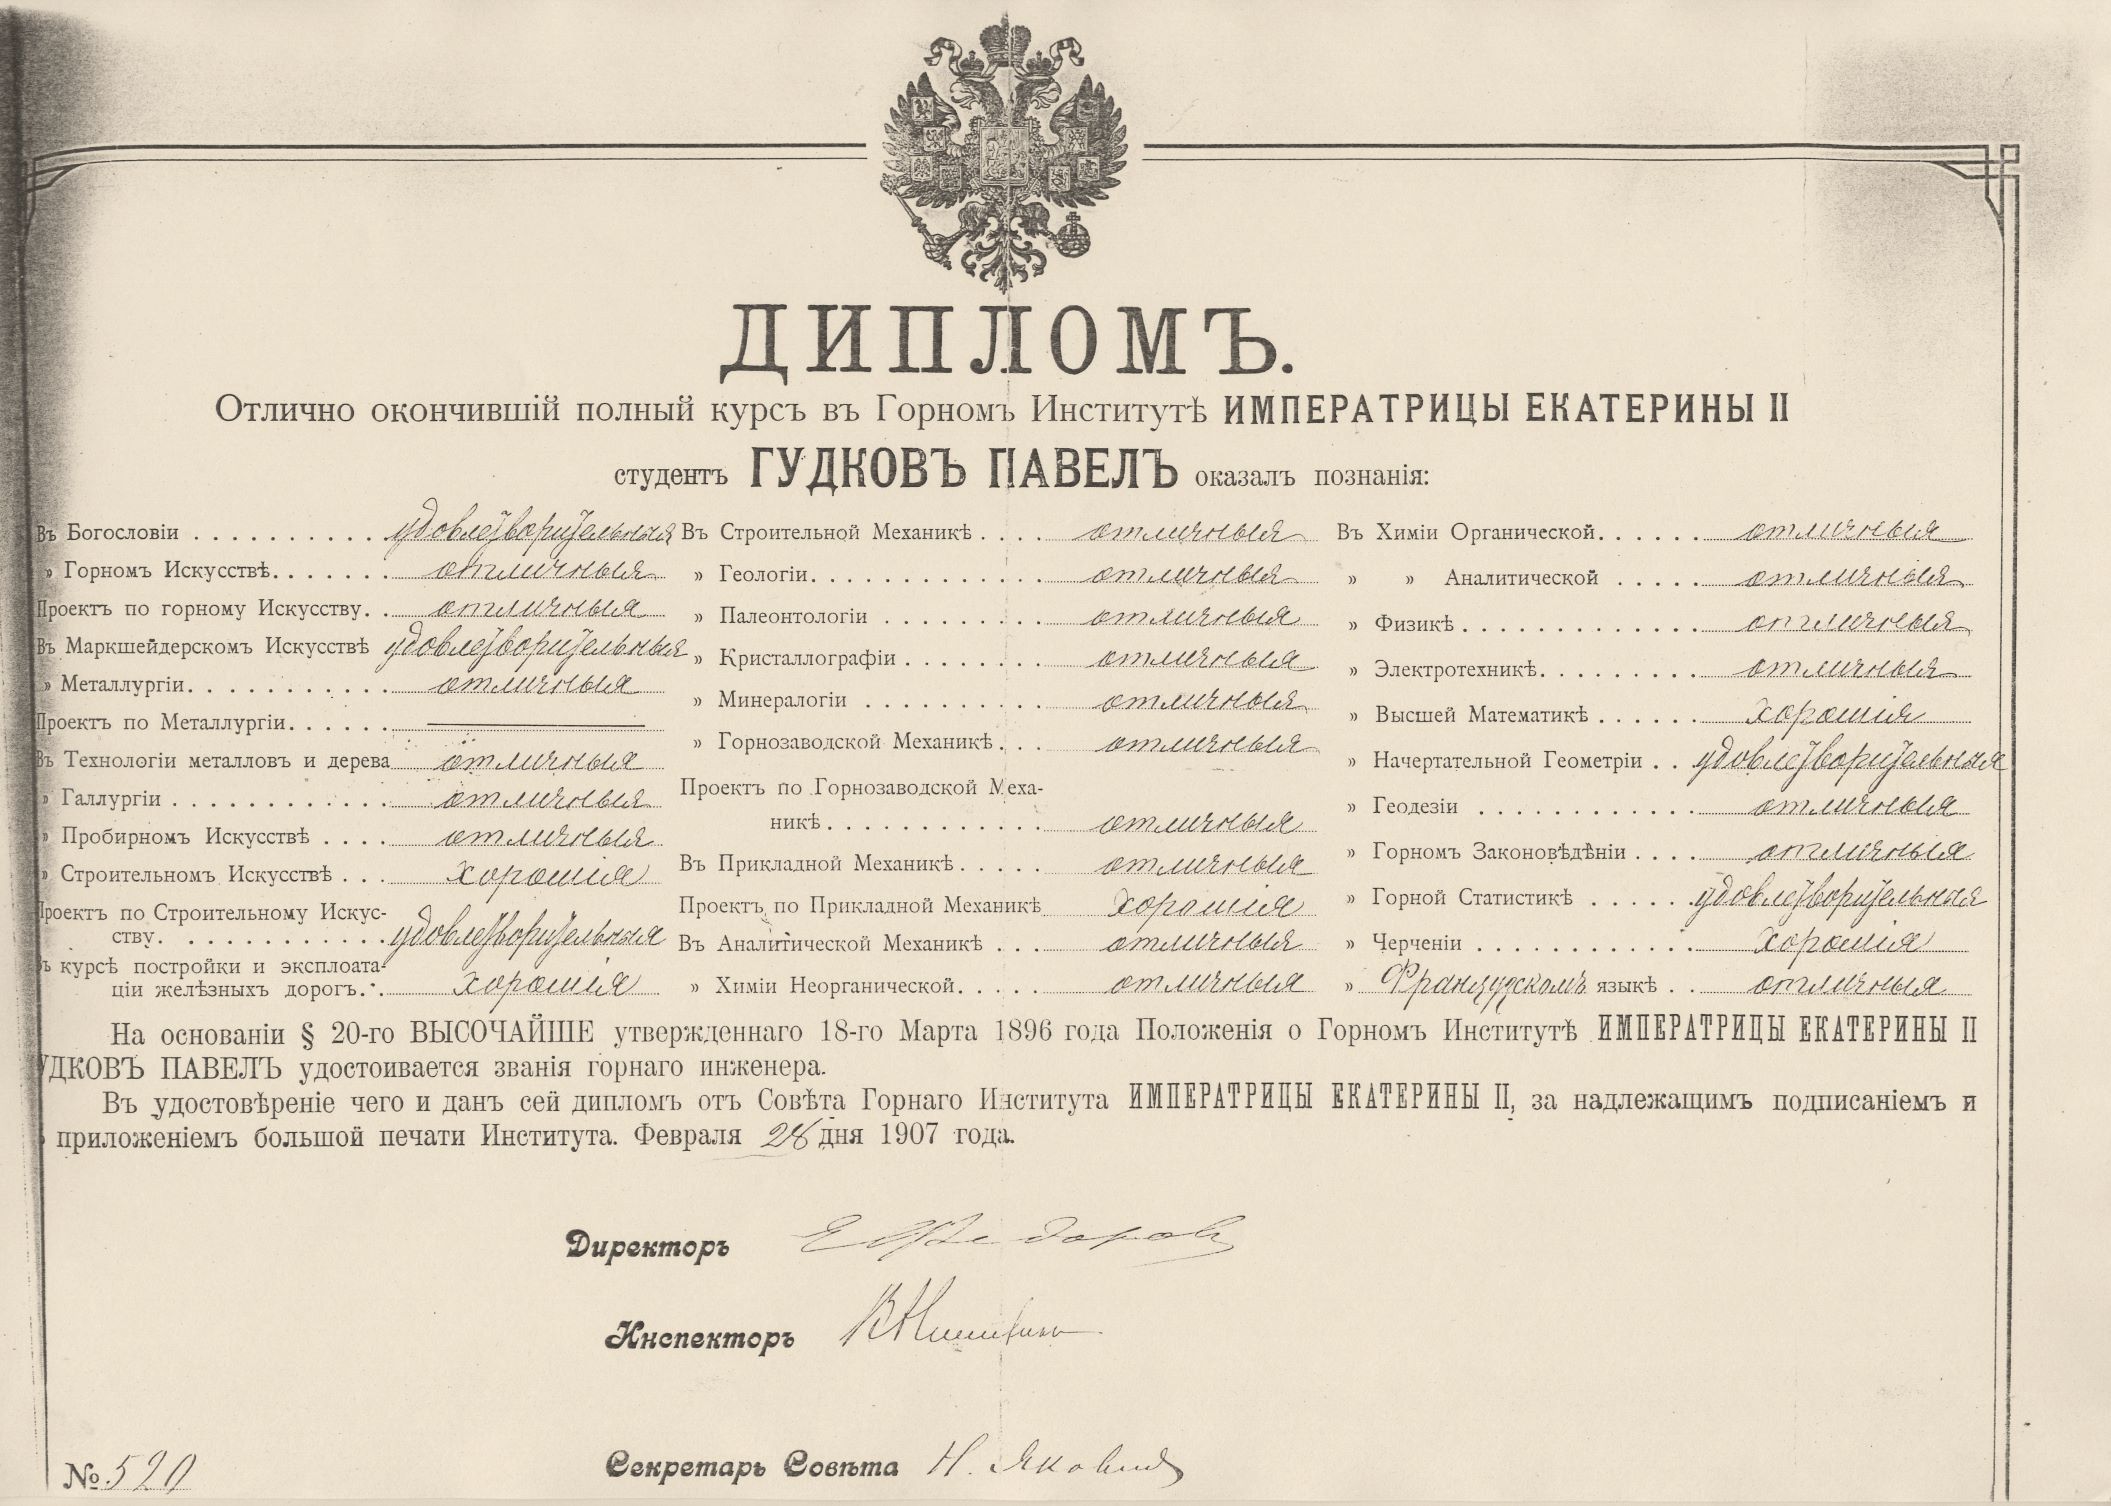 ДИПЛОМЪ.
Отлично окончившій полный курсъ въ Горномъ Институтѣ ИМПЕРАТРИЦЫ ЕКАТЕРИНЫ II
студентъ ГУДКОВЪ ПАВЕЛЪ оказалъ познанія:
Въ Богословіи . . . . . . . . . . удовлетворительныя
» Горномъ Искусствѣ. . . . . . . отличныя
Проектъ по горному Искусству. . отличныя
Въ Маркшейдерскомъ Искусствѣ удовлетворительныя
» Металлургіи. . . . . . . . . . . отличныя
Проектъ по Металлургіи. . . . . .
Въ Технологіи металловъ и дерева отличныя
» Галлургіи . . . . . . . . . . . . отличныя
» Пробирномъ Искусствѣ . . . . отличныя
» Строительномъ Искусствѣ . . . хорошія
Проектъ по Строительному Искус-
ству. . . . . . . . . . . . удовлетворительныя
ъ курсѣ постройки и эксплоата-
ціи желѣзныхъ дорогъ. . хорошія
Въ Строительной Механикѣ . . . . отличныя
» Геологіи. . . . . . . . . . . . . отличныя
» Палеонтологіи . . . . . . . . . отличныя
» Кристаллографіи . . . . . . . . отличныя
» Минералогіи . . . . . . . . . . отличныя
» Горнозаводской Механикѣ. . . отличныя
Проектъ по Горнозаводской Меха-
никѣ. . . . . . . . . . . . . отличныя
Въ Прикладной Механикѣ. . . . . отличныя
Проектъ по Прикладной Механикѣ хорошія
Въ Аналитической Механикѣ . . . отличныя
» Химіи Неорганической. . . . . отличныя
Въ Химіи Органической. . . . . . отличныя
» » Аналитической . . . . . отличныя
» Физикѣ. . . . . . . . . . . . . отличныя
» Электротехникѣ. . . . . . . . . отличныя
» Высшей Математикѣ . . . . . . хорошія
» Начертательной Геометріи . . удовлетворительныя
» Геодезіи . . . . . . . . . . . . отличныя
» Горномъ Законовѣдѣніи . . . . отличныя
» Горной Статистикѣ . . . . . . удовлетворительныя
» Черченіи . . . . . . . . . . . . . хорошія
» Французскомъ языкѣ . . отличныя
На основаніи § 20-го ВЫСОЧАЙШЕ утвержденнаго 18-го Марта 1896 года Положенія о Горномъ Институтѣ ИМПЕРАТРИЦЫ ЕКАТЕРИНЫ II
УДКОВЪ ПАВЕЛЪ удостоивается званія горнаго инженера.
Въ удостовѣреніе чего и данъ сей дипломъ отъ Совѣта Горнаго Института ИМПЕРАТРИЦЫ ЕКАТЕРИНЫ II, за надлежащимъ подписаніемъ и
приложеніемъ большой печати Института. Февраля 28 дня 1907 года.
Директоръ Е Федоровъ
Инспекторъ
Секретарь Совѣта Н. Яковлев
№ 520